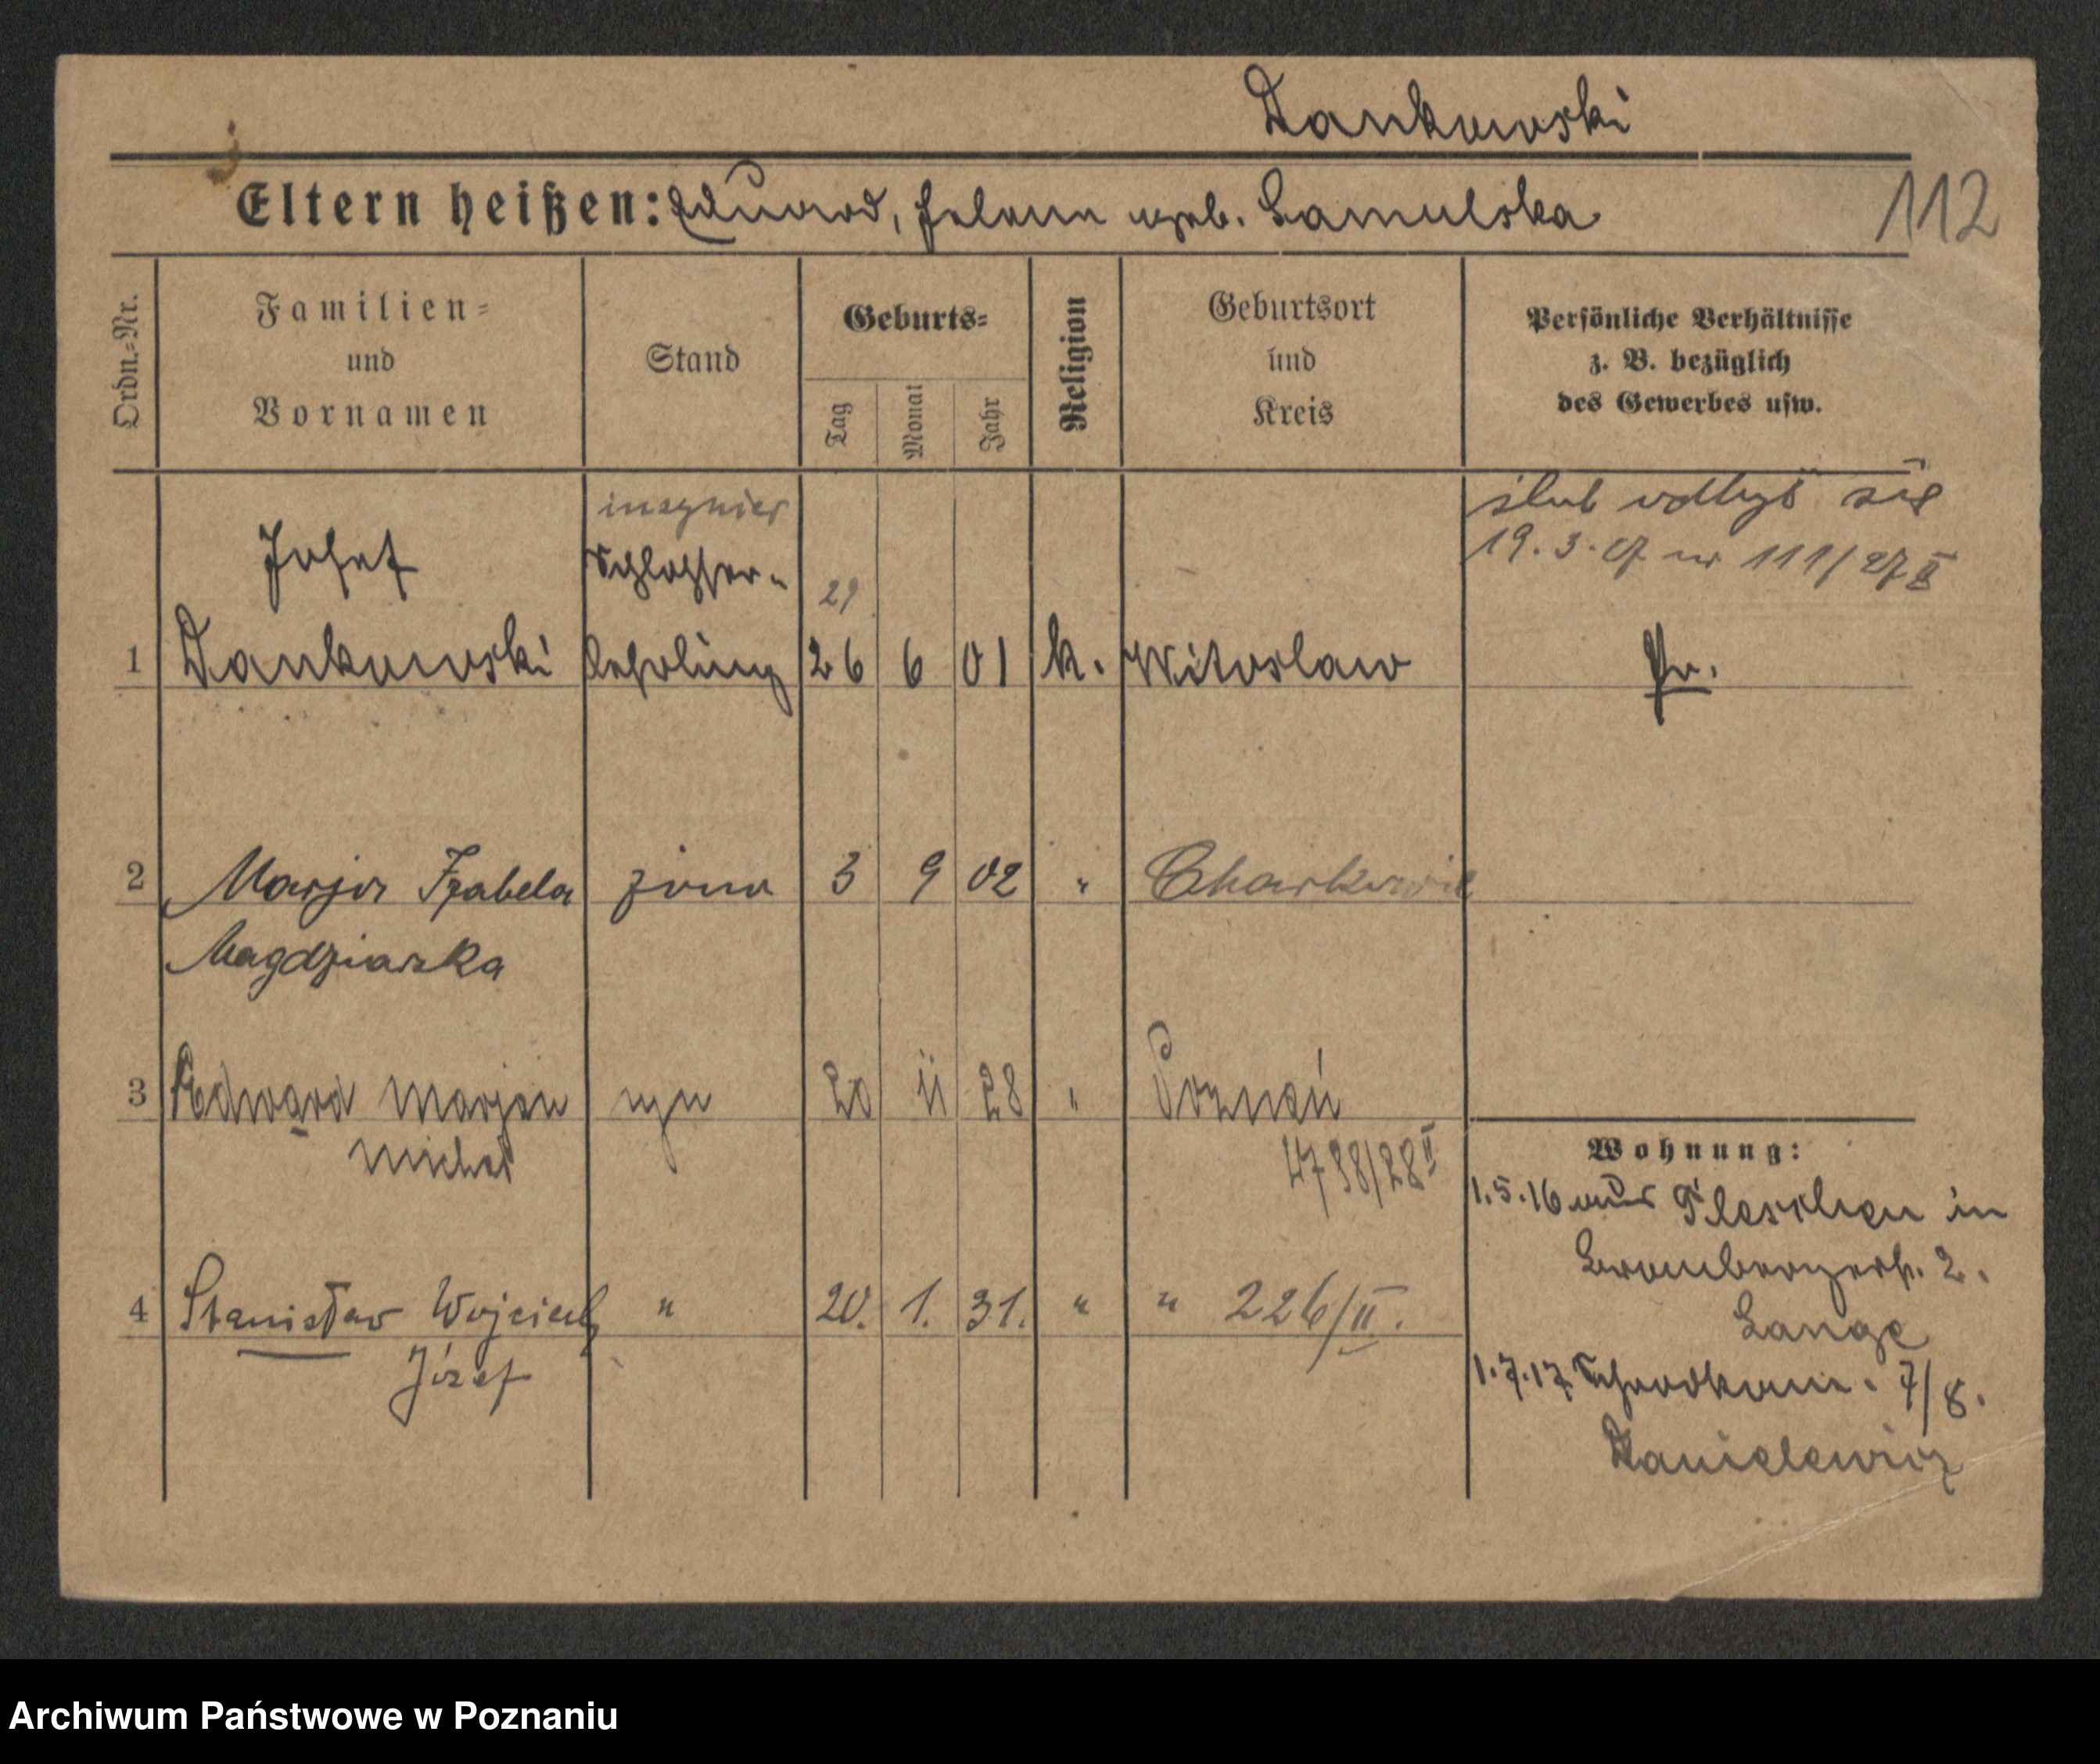 Dankowski
Eltern heißen: Eduard, Helene geb. Lamulska
112
Ordn.=Nr.
Familien=
und
Vornamen
Stand
Geburts=
Tag
Monat
Jahr
Religion
Geburtsort
und
Kreis
Persönliche Verhältnisse
z. B. bezüglich
des Gewerbes usw.
ślub odbył się
19. 3. 27 nr 111/27 II
Josef
Schlosser-
29
1 Dankowski lehrling 26 6 01 k. Witoslaw Pr.
2 Marja Izabela żona 3 9 02 " Charkowie
Magdziarska
3 Edward Marjan syn 20 11 28 " Poznań
Michał
4798/28 II
4 Stanisław Wojciech " 20. 1. 31. " " 226/II.
Józef
Wohnung:
1.5.16 aus Pleschen in
Brombergerstr. 2.
Lange
1.7.17. Schrodkam. 7/8.
Danielewicz
Archiwum Państwowe w Poznaniu